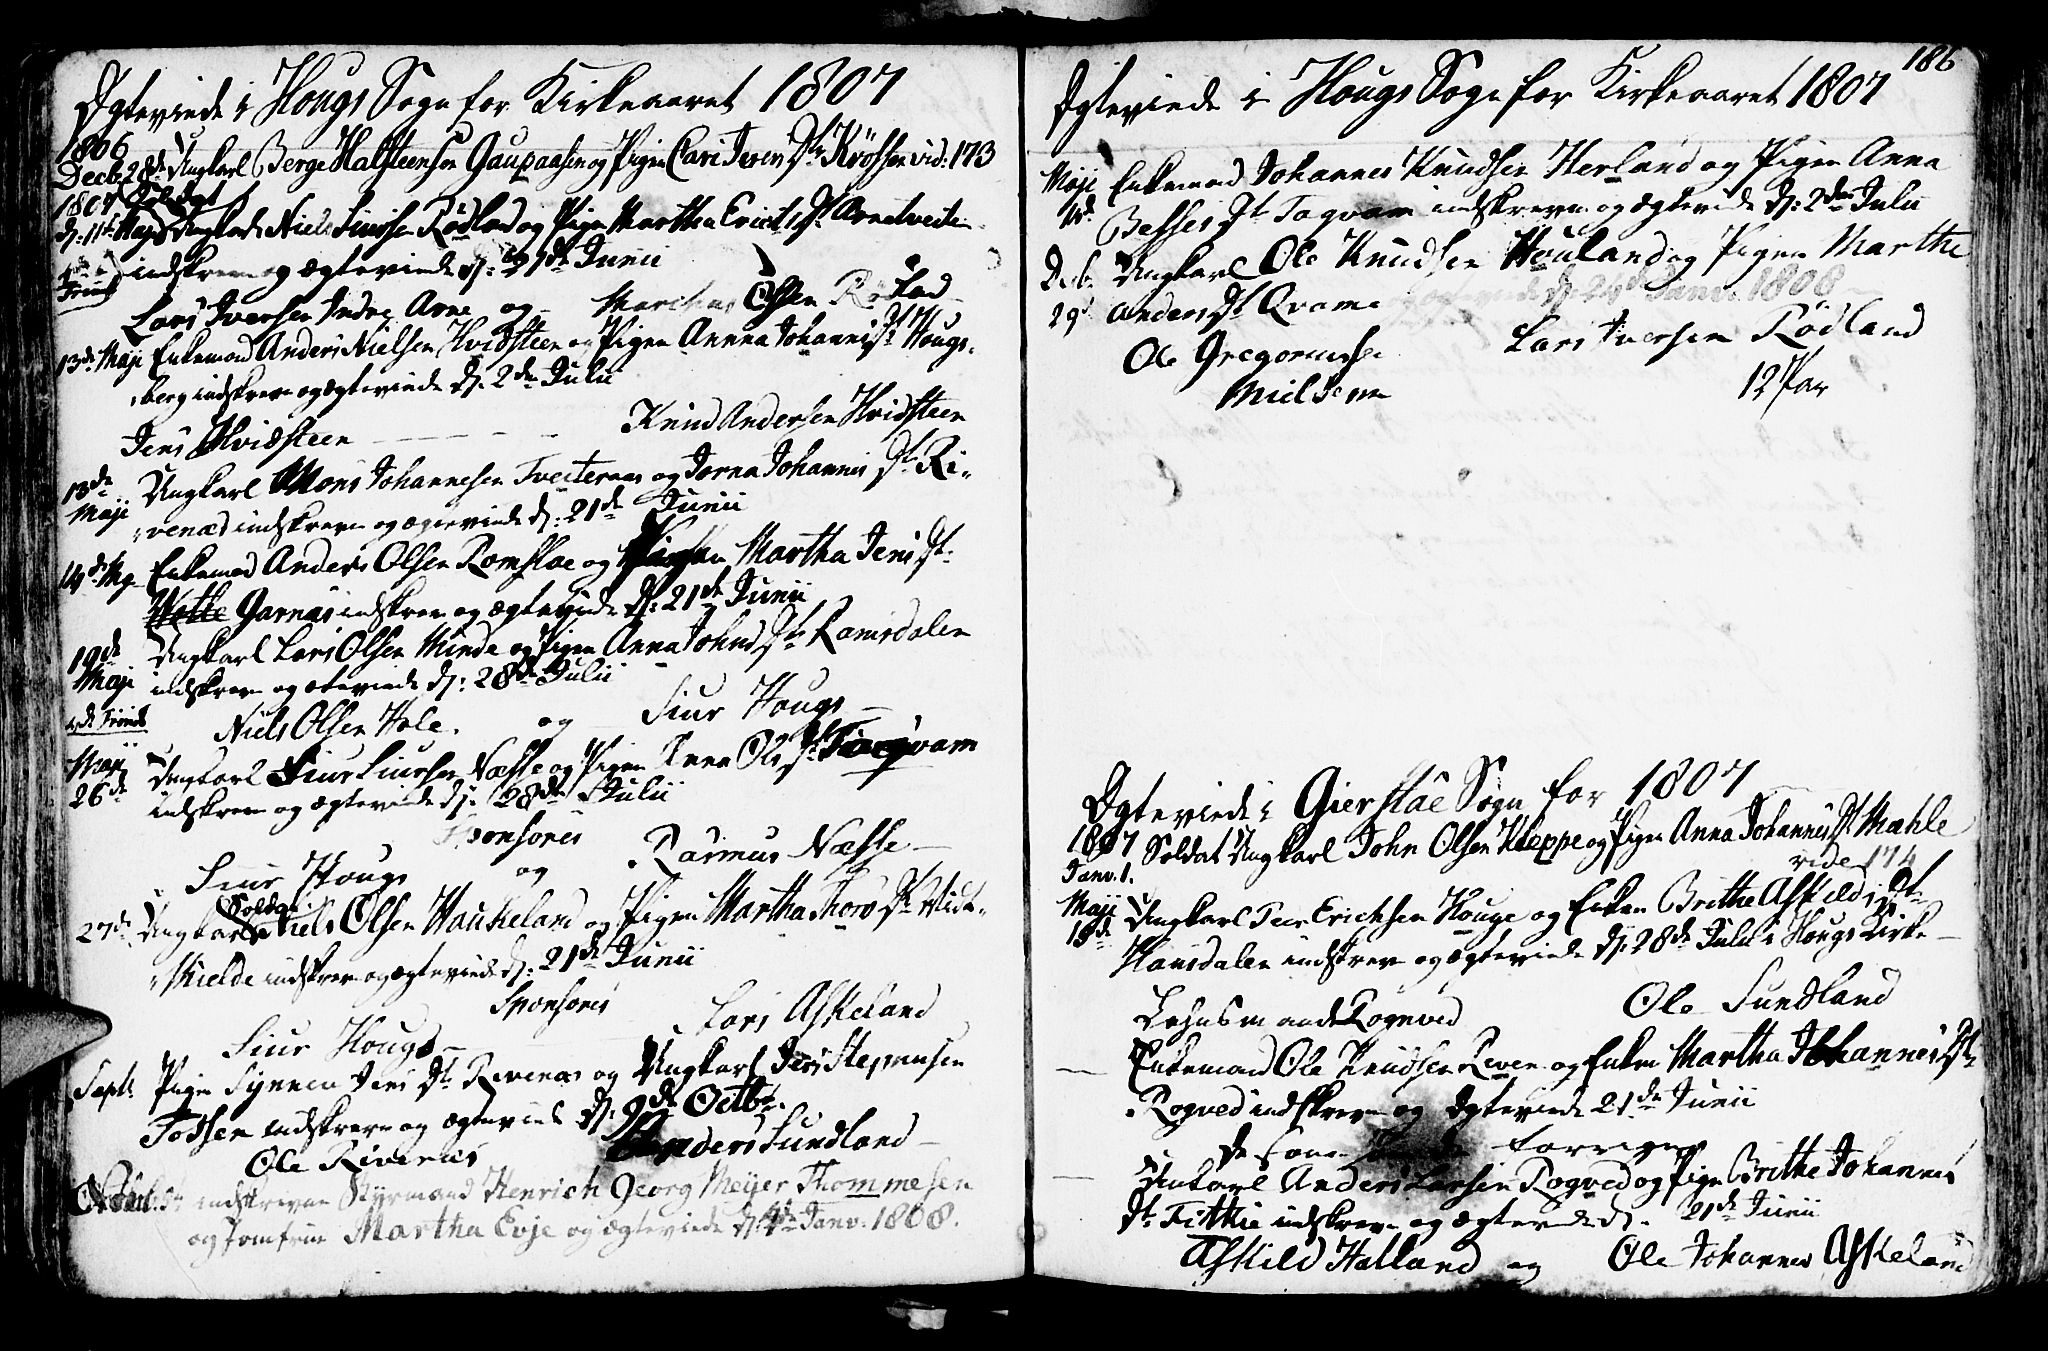 Ægteviede i Hougs Sogn for Kirkeaaret 1807
1806
Decb 28de Ungkarl Berge Halsteensen Gaupaasen og Pigen Cari Ivers Dtr Krössen vid: 173
1807 Soldat
d: 11te Maji Ungkarl Niels Siursen Rödland og Pigen Martha Erichs Dt Arnetveiten
indskrevne og ægteviede d: 21de Junii
Lars Iversen Indre Arne og Olsen Rödland
13de Maji Enkemand Anders Nielsen Hvidsteen og Pigen Anna Johannis Dt Hougs-
berg indskrevne og ægteviede d: 2den Julii
Jens Hvidsteen Knud Andersen Hvidsteen
13de Maji Ungkarl Mons Johannesen Tveiteraas og Jorna Johannis Dt Ri-
venæs indskrevne og ægteviede d: 21de Junii
14de Mai Enkemand Anders Olsen Romsloe og Martha Jens Dt
Garnæs indskrevne og ægteviede d: 21de Junii
19de Maji Ungkarl Lars Olsen Minde og Pigen Anna Johns Dtr Ramsdalen
indskrevne og æteviede d: 28de Julii
Niels Olsen Hole og Siur Hougs
Maji 26de Ungkarl Siur Siursen Næsse og Pigen Anna Ols Dt Togvam
indskrevne og ægteviede d: 28de Julii
Sponsores
Siur Hougs og Rasmus Næsse
Soldat
27de Ungkarl Niels Olsen Haukeland og Pigen Martha Thors Dt Midt-
Mielde indskrevne og ægteviede d: 21de Junii
Sponsores
Siur Hougs Lars Askeland
Septb: Pigen Synneva Jens Dt Rivenæs og Ungkarl Jens Stephensen
Todsen indskrevne og ægteviede d: 9de Octbr.
Ole Rivenæs Anders Sundland
indskrevne Styrmand Henrich Georg Meyer Thommesen
og Jomfrue Martha Evje og ægteviede d: Janv: 1808.
186
Ægteviede i Hougs Sogn for Kirkeaaret 1807
Maji Enkemand Johannes Knudsen Herland og Pigen Anna
Besses Dt Togvam indskrevne og ægteviede d: 2den Julii
Decb. Ungkarl Ole Knudsen Houland og Pigen Marthe
29d Anders Dt Qvame og ægteviede d: 24de Janv: 1808
Ole Gregoriussen Lars Iversen Rödland
Mielsem 12 Par
Ægteviede i Gierstae Sogn for 1807
1807 Soldat Ungkarl John Olsen Kleppe og Pigen Anna Johannis Dt Mæhle
Janv. 1. vide 174
Maji Ungkarl Peer Erichsen Houge og Enken Brithe Askilds Dt
13de Hansdalen indskrevne og ægteviede d: 28de Julii i Hougs Kirke
Lehnsmand Rogved Ole Sundland
Enkemand Ole Knudsen Riven og Enken Martha Johannis Dt
Rogved indskrevne og Ægteviede 21de Junii
De samme forrige
Ungkarl Anders Larsen Rogved og Pigen Brithe Johannis
Dt Fittie indskrevne og ægteviede d. 21de Junii
Askild Hatland og Ole Johannes Askeland